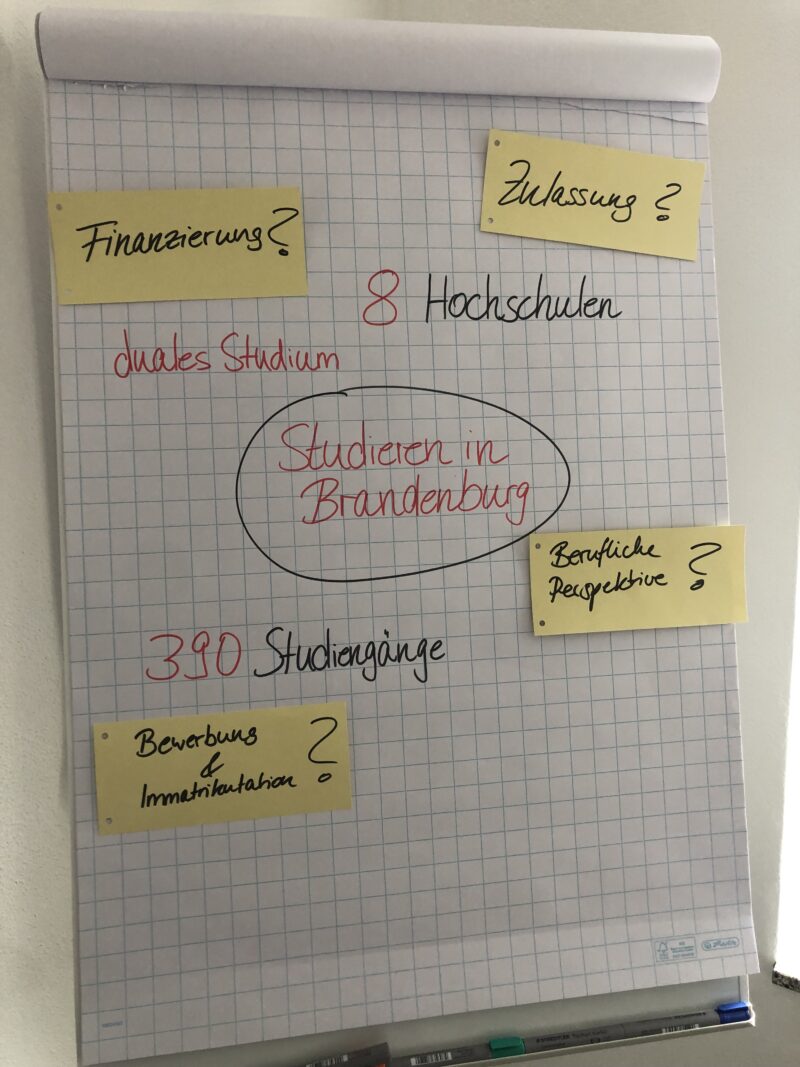 Zulassung ?
Finanzierung?
8 Hochschulen
duales Studium
Studieren in
Brandenburg
Berufliche
Perspektive ?
390 Studiengänge
Bewerbung
&
Immatrikulation ?